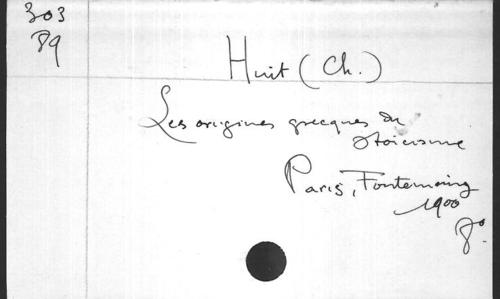 303
89
Huit (Ch.)
Les origines grecques du
stoicisme
Paris, Fontemoing
1900
8°